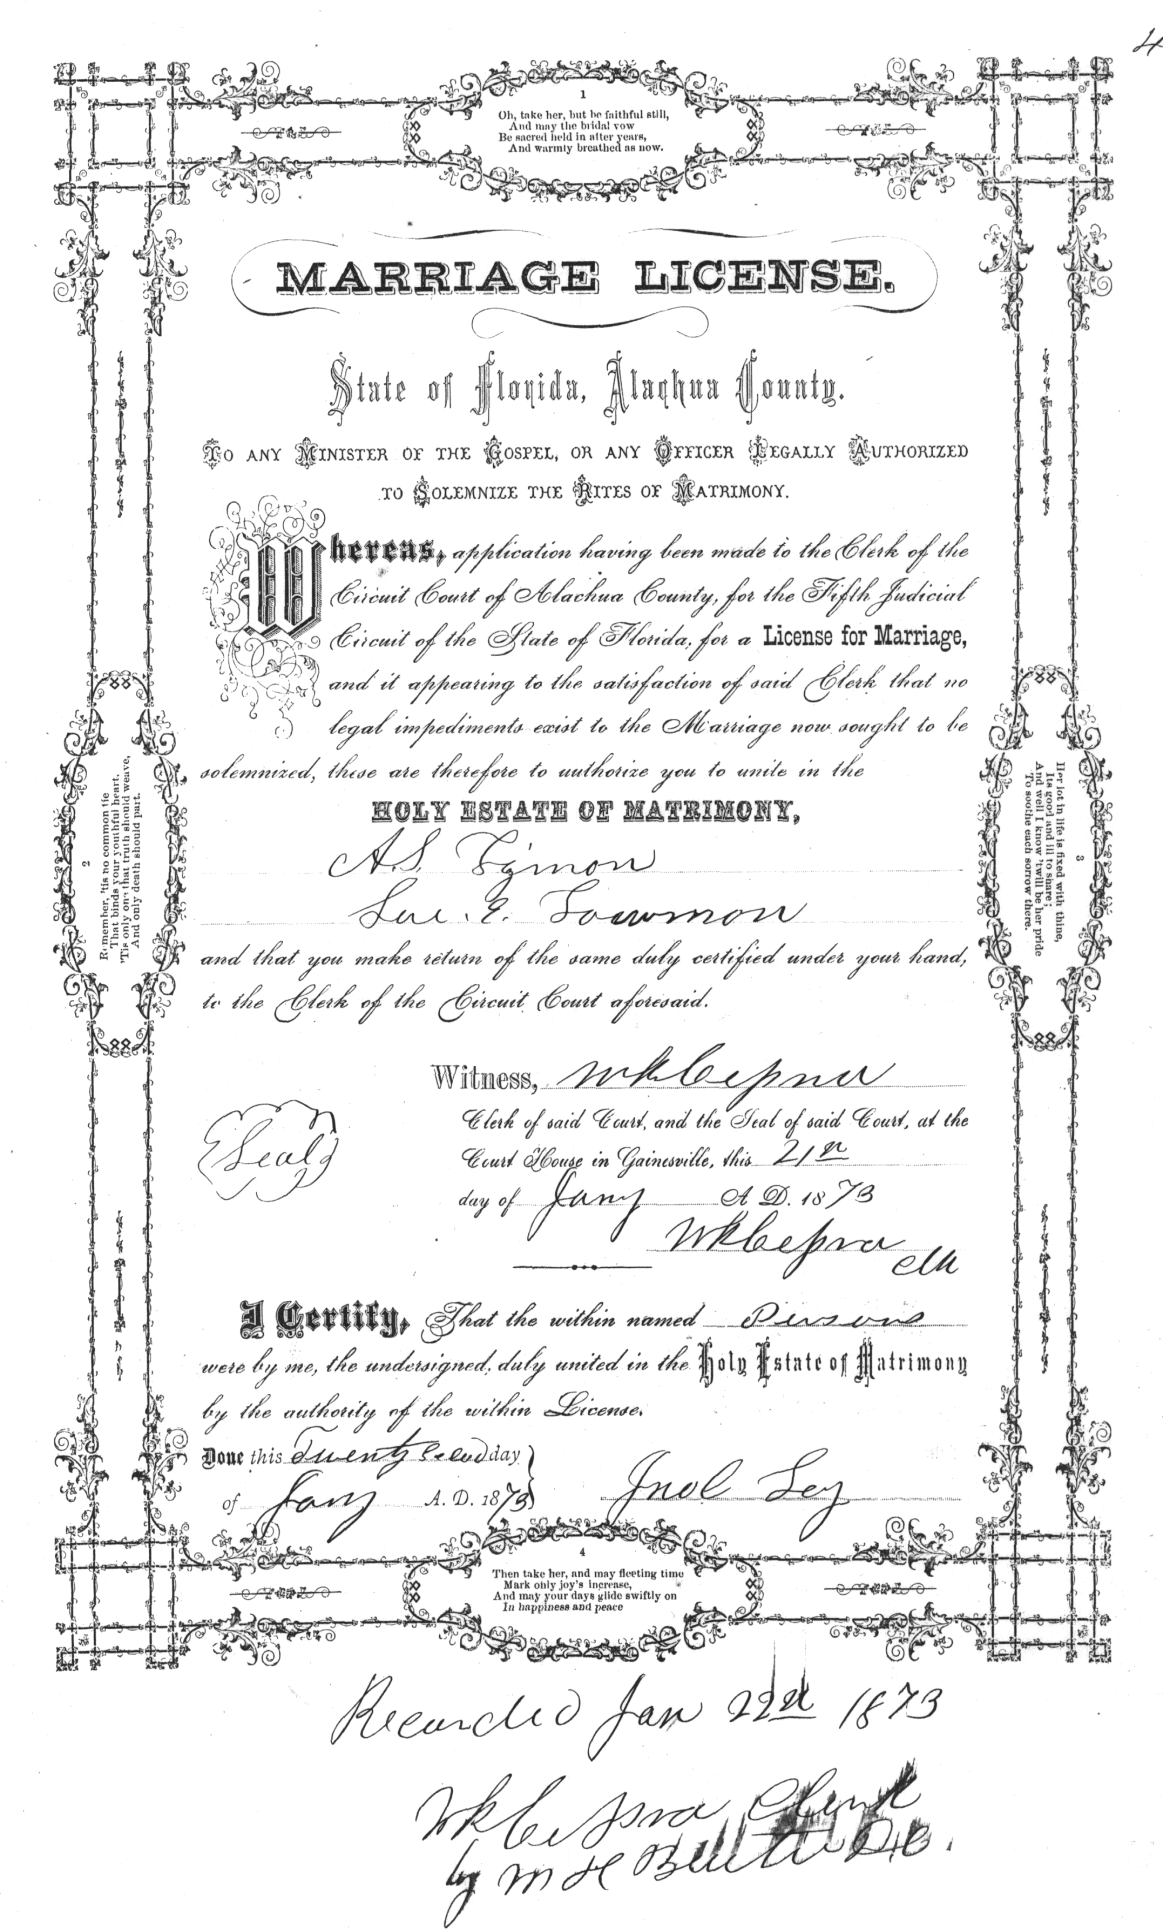 4
1
Oh, take her, but be faithful still,
And may the bridal vow
Be sacred held in after years,
And warmly breathed as now.
MARRIAGE LICENSE.
State of Florida, Alachua County.
TO ANY MINISTER OF THE GOSPEL, OR ANY OFFICER LEGALLY AUTHORIZED
TO SOLEMNIZE THE RITES OF MATRIMONY.
Whereas, application having been made to the Clerk of the
Circuit Court of Alachua County, for the Fifth Judicial
Circuit of the State of Florida, for a License for Marriage,
and it appearing to the satisfaction of said Clerk that no
legal impediments exist to the Marriage now sought to be
solemnized, these are therefore to authorize you to unite in the
HOLY ESTATE OF MATRIMONY,
A S
Sue. E.
and that you make return of the same duly certified under your hand,
to the Clerk of the Circuit Court aforesaid.
Witness, W K Cessna
Clerk of said Court, and the Seal of said Court, at the
Seal
Court House in Gainesville, this 21st
day of Jany A. D. 1873
W K Cessna
Clk
I Certify, That the within named Persons
were by me, the undersigned, duly united in the Holy Estate of Matrimony
by the authority of the within License.
Done this Twenty Second day
of Jany A. D. 1873
Jno C Ley
2
Remember, 'tis no common tie
That binds your youthful heart,
'Tis only one that truth should weave,
And only death should part.
3
Her lot in life is fixed with thine,
Its good and ill to share;
And well I know 'twill be her pride
To soothe each sorrow there.
4
Then take her, and may fleeting time
Mark only joy's increase,
And may your days glide swiftly on
In happiness and peace
Recorded Jan 22nd 1873
W K Cessna Clerk
by M H D.C.